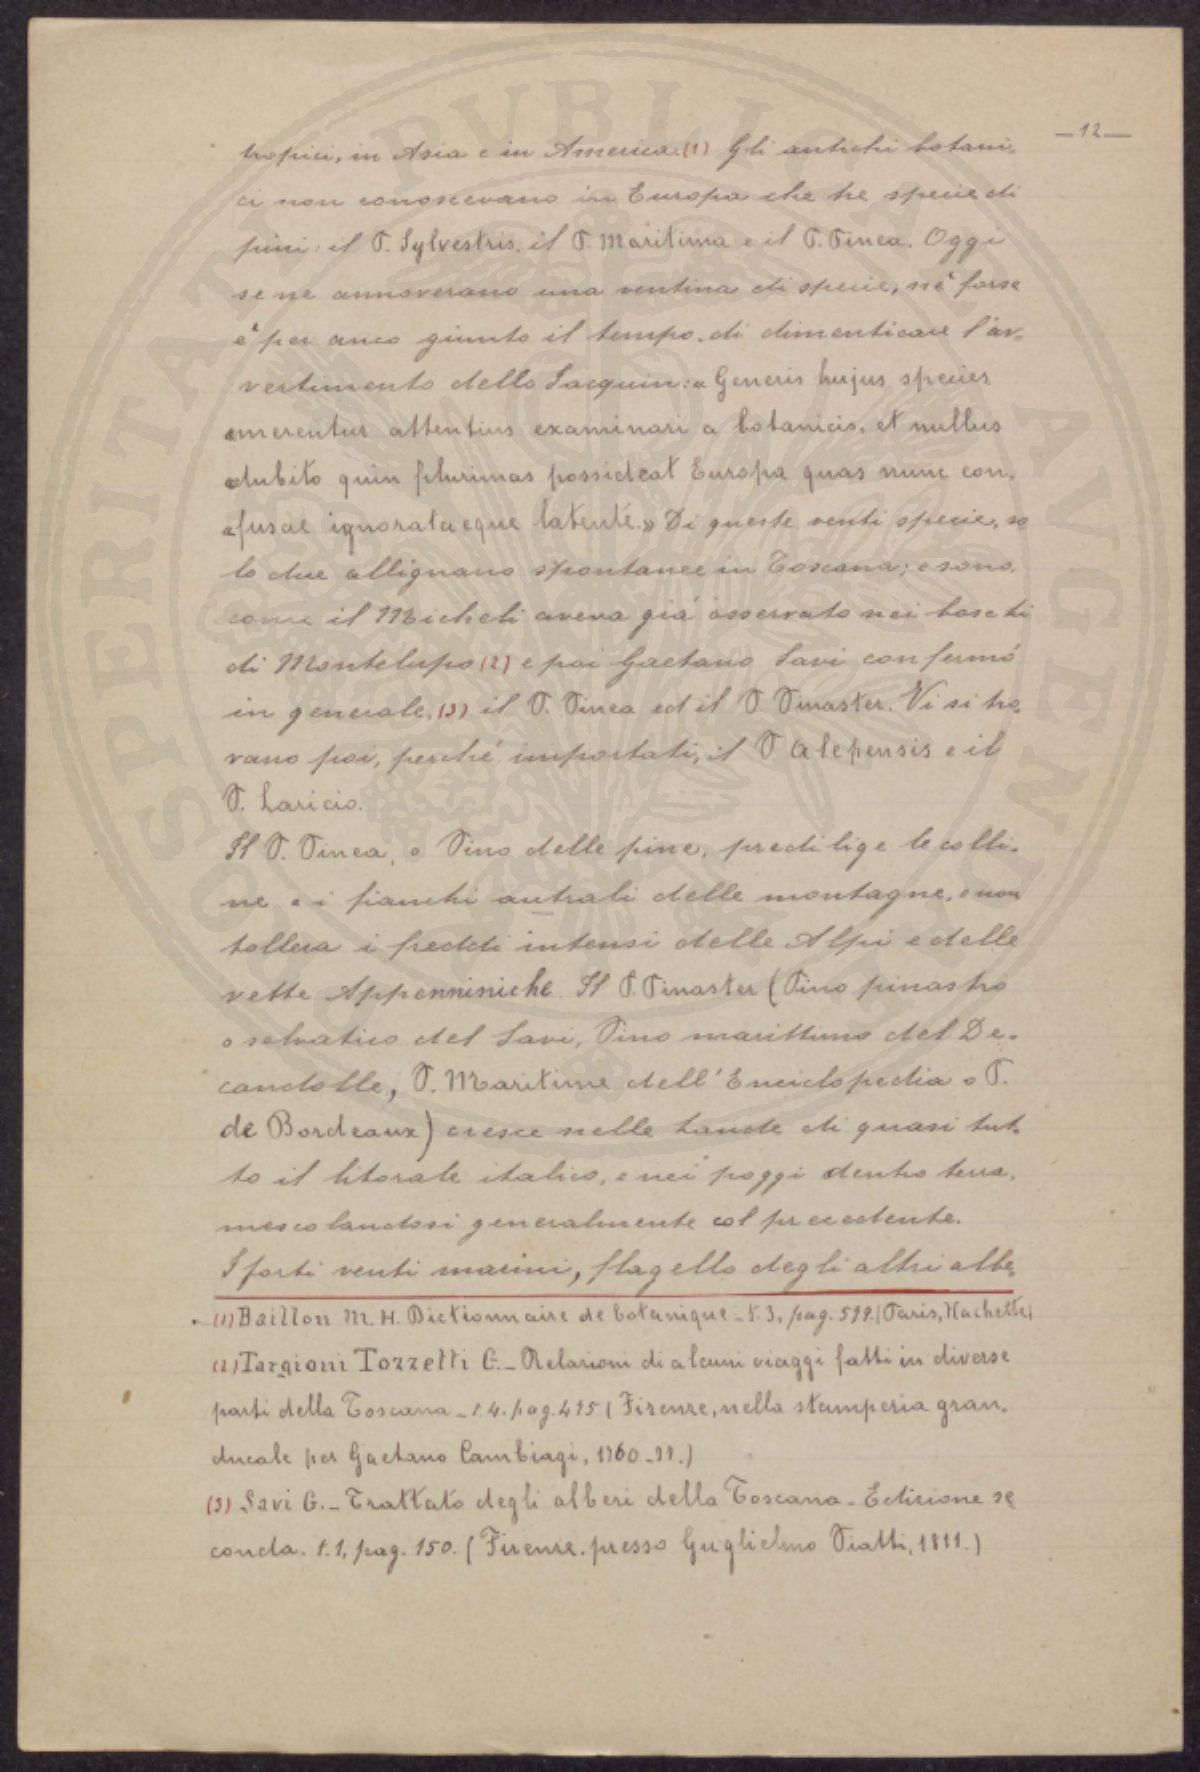 —12—
tropici, in Asia e in America.(1) Gli antichi botani-
ci non conoscevano in Europa che tre specie di
pini: il P. Sylvestris, il P. Maritima e il P. Pinea. Oggi
se ne annoverano una ventina di specie, nè forse
è per anco giunto il tempo di dimenticare l'av-
vertimento dello Jacquin: « Generis hujus species
«merentur attentius examinari a botanicis, et nullus
«dubito quin plurimas possideat Europa quas nunc con-
«fusae ignorataeque latent.» Di queste venti specie, so
lo due allignano spontanee in Toscana; e sono,
come il Micheli aveva già osservato nei boschi
di Montelupo (2) e poi Gaetano Savi confermò
in generale, (3) il P. Pinea ed il P. Pinaster. Vi si tro-
vano poi, perché importati, il P. alepensis e il
P. Laricio.
Il P. Pinea, o Pino delle pine, predilige le colli-
ne e i fianchi autrali delle montagne, e non
tollera i freddi intensi delle Alpi e delle
vette Appenniniche. Il P. Pinaster (Pino pinastro
o selvatico del Savi, Pino marittimo del De-
candolle, P. Maritime dell'Enciclopedia o P.
de Bordeaux) cresce nelle Lande di quasi tut-
to il litorale italico, e nei poggi dentro terra,
mescolandosi generalmente col precedente.
I forti venti marini, flagello degli altri albe-
(1) Baillon M. H. Dictionnaire de botanique - t. 3, pag. 599. (Paris, Hachette)
(2) Targioni Tozzetti G. - Relazioni di alcuni viaggi fatti in diverse
parti della Toscana - t. 4. pag. 475 (Firenze, nella stamperia gran-
ducale per Gaetano Cambiagi, 1760-79.)
(3) Savi G. - Trattato degli alberi della Toscana - Edizione se-
conda. t. 1, pag. 150. (Firenze, presso Guglielmo Piatti, 1811.)